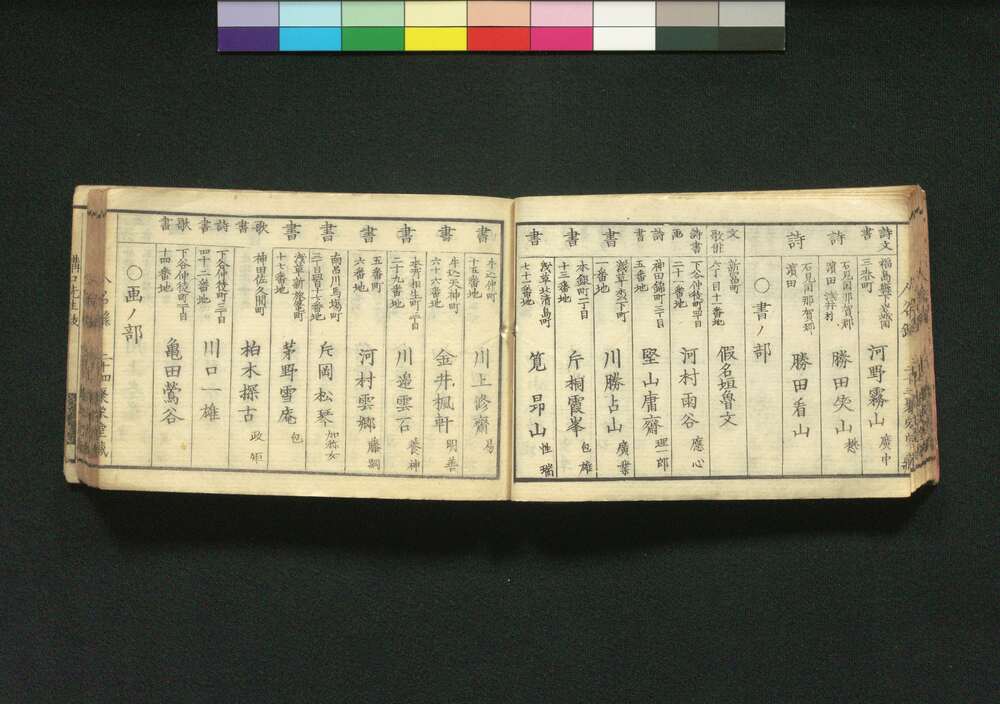 詩文書 福島縣下岩城国三春町 河野霧山 廣中
詩 石見国那賀郡濱田 浅井村 勝田矢山 楙
詩 石見国那賀郡濱田 勝田看山
〇書ノ部
文歌俳 新富町六丁目十一番地 假名垣魯文
詩書画 下谷仲徒町四丁目二十一番地 河村雨谷 應心
詩書 神田錦町三丁目五番地 堅山庸齋 理一郎
書 浅草松下町一番地 川勝占山 廣業
書 本銀町二丁目十三番地 片桐霞峯 包雄
書 浅草北清島町七十二番地 筧昻山 惟瑞
書 牛込仲町十五番地 川上修齋 易
書 牛込天神町六十六番地 金井楓軒 明善
書 本所相生町二丁目二十九番地 川邉雲石 養神
書 五番町六番地 河村雲郷 藤嗣
書 南品川馬場町三丁目四百十六番地 片岡松琴 加称女
書 浅草新旅篭町十七番地 茅野雪庵 包
歌書 神田佐久間町 柏木探古 政矩
詩書 下谷仲徒町三丁目四十二番地 川口一雄
歌書 下谷仲徒町三丁目十四番地 亀田鶯谷
〇画ノ部
人名録
二十四